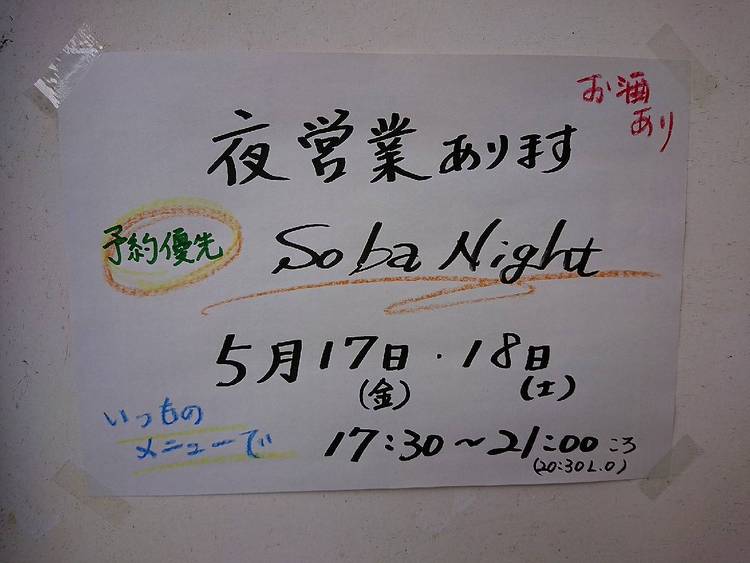 お酒
あり
夜営業あります
予約優先
Soba Night
5月17日・18日
(金)
(土)
いつもの
メニューで
17:30～21:00ころ
(20:30L.O)